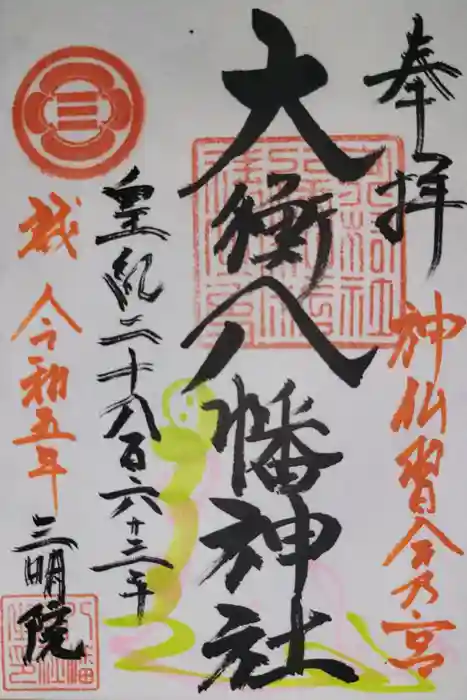 奉拝
神仏習合乃宮
大衡八幡神社
皇紀二千八百六十三年
令和五年
三明院